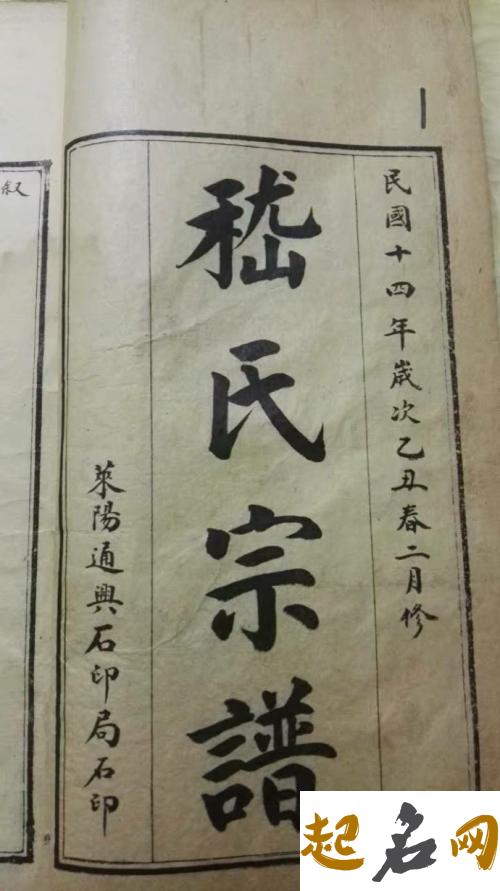 民國十四年歲次乙丑春二月修
嵇氏宗譜
萊陽通興石印局石印
叙
起名网